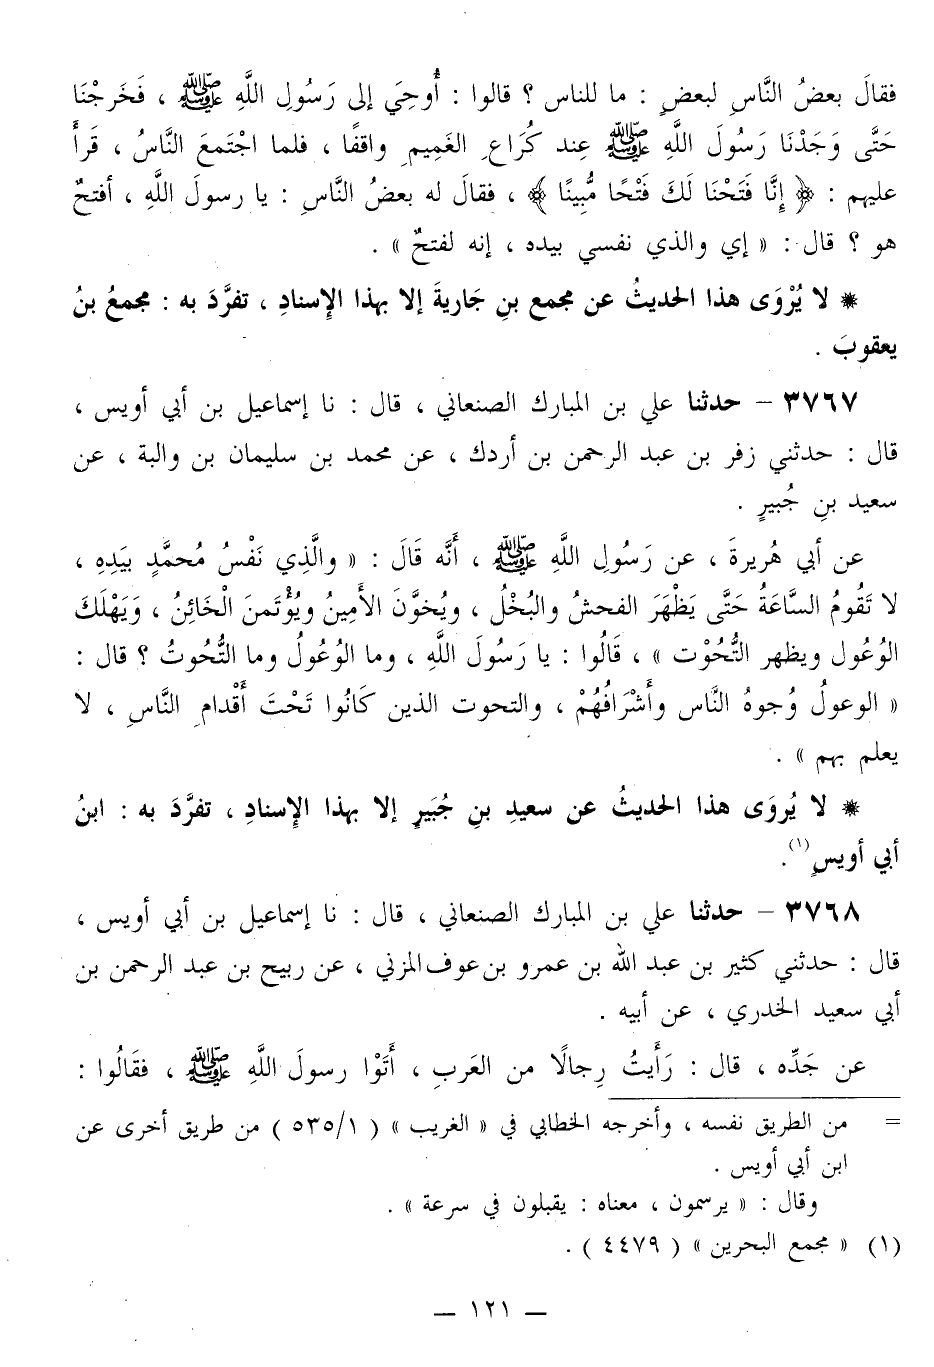 فقالَ بعضُ النَّاسِ لبعضٍ : ما للناس ؟ قالوا : أُوحِيَ إلى رَسُولِ اللَّهِ ﷺ ، فَخَرجْنَا
حَتَّى وَجَدْنَا رَسُولَ اللَّهِ ﷺ عِند كُرَاعِ الغَمِيمِ واقفًا ، فلما اجْتَمعَ النَّاسُ ، قَرأَ
عليهم : ﴿ إِنَّا فَتَحْنَا لَكَ فَتْحًا مُّبِينًا ﴾ ، فقالَ له بعضُ النَّاسِ : يا رسولَ اللَّهِ ، أفتحٌ
هو ؟ قال : « إي والذي نفسي بيده ، إنه لفتحٌ » .
* لا يُرْوَى هذا الحديثُ عن مجمع بنِ جَاريةَ إلا بهذا الإِسنادِ ، تفرَّدَ به : مجمعُ بنُ
يعقوبَ .
٣٧٦٧ – حدثنا علي بن المبارك الصنعاني ، قال : نا إسماعيل بن أبي أويس ،
قال : حدثني زفر بن عبد الرحمن بن أردك ، عن محمد بن سليمان بن والبة ، عن
سعيد بنِ جُبيرٍ .
عن أبي هُريرةَ ، عن رَسُولِ اللَّهِ ﷺ ، أَنَّه قَالَ : « والَّذِي نَفْسُ مُحمَّدٍ بِيَدِهِ ،
لا تَقُومُ السَّاعَةُ حَتَّى يَظْهَرَ الفحشُ والبُخْلُ ، ويُخوَّنَ الأَمِينُ ويُؤْتَمنَ الْخَائِنُ ، وَيَهْلَكَ
الوُعُول ويظهر التُّحُوْت » ، قَالُوا : يا رَسُولَ اللَّهِ ، وما الوُعُولُ وما التُّحُوتُ ؟ قال :
« الوعولُ وُجوهُ النَّاس وأَشْرَافُهُمْ ، والتحوت الذين كَانُوا تَحْتَ أَقْدامِ النَّاسِ ، لا
يعلم بهم » .
* لا يُروَى هذا الحديثُ عن سعيدِ بنِ جُبَيرٍ إلا بهذا الإِسنادِ ، تفرَّدَ به : ابنُ
أبي أويسٍ(١).
٣٧٦٨ – حدثنا علي بن المبارك الصنعاني ، قال : نا إسماعيل بن أبي أويس ،
قال : حدثني كثير بن عبد الله بن عمرو بن عوف المزني ، عن ربيح بن عبد الرحمن بن
أبي سعيد الخدري ، عن أبيه .
عن جَدِّه ، قال : رَأَيتُ رِجالًا من العَربِ ، أَتَوْا رسولَ اللَّهِ ﷺ ، فقَالُوا :
= من الطريق نفسه ، وأخرجه الخطابي في « الغريب » ( ١/ ٥٣٥ ) من طريق أخرى عن
ابن أبي أويس .
وقال : « يرسمون ، معناه : يقبلون في سرعة » .
(١) « مجمع البحرين » ( ٤٤٧٩ ) .
— ١٢١ —